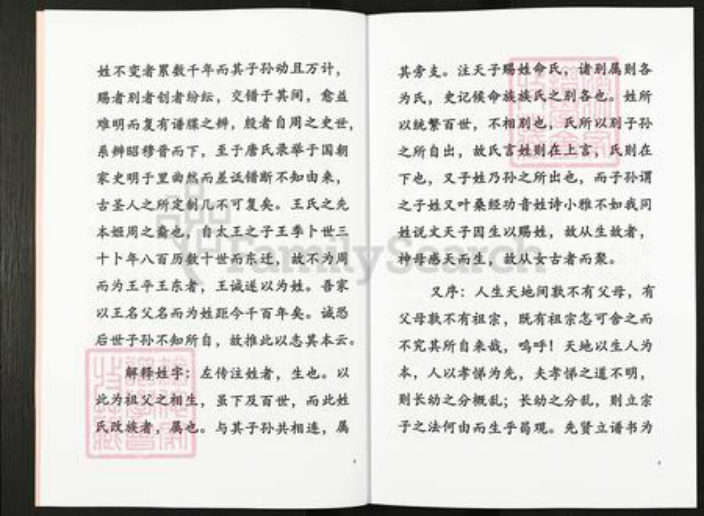 姓不变者累数千年而其子孙动且万计，
赐者别者创者纷纭，交错于其间，愈益
难明而复有谱牒之辨，殷者自周之史世，
系辨昭穆晋而下，至于唐氏录举于国朝
家史明于里曲然而差讹错断不知由来，
古圣人之所定制几不可复矣。王氏之先
本姬周之裔也，自太王之子王季卜世三
十卜年八百历数十世而东迁，故不为周
而为王平王东者，王诚遂以为姓。吾家
以王名父名而为姓距今千百年矣。诚恐
后世子孙不知所自，故推此以志其本云。
解释姓字：左传注姓者，生也。以
此为祖父之相生，虽下及百世，而此姓
氏改族者，属也。与其子孙共相连，属
其旁支。注天子赐姓命氏，诸别属则各
为氏，史记候命族族氏之别各也。姓所
以统繁百世，不相别也，氏所以别子孙
之所自出，故氏言姓则在上言，氏则在
下也，又子姓乃孙之所出也，而子孙谓
之子姓又叶桑经功音姓诗小雅不如我同
姓说文天子因生以赐姓，故从生故者，
神母感天而生，故从女古者而聚。
又序：人生天地间孰不有父母，有
父母孰不有祖宗，既有祖宗怎可舍之而
不究其所自来哉，呜呼！天地以生人为
本，人以孝悌为先，夫孝悌之道不明，
则长幼之分概乱；长幼之分乱，则立宗
子之法何由而生乎曷观。先贤立谱书为
FamilySearch